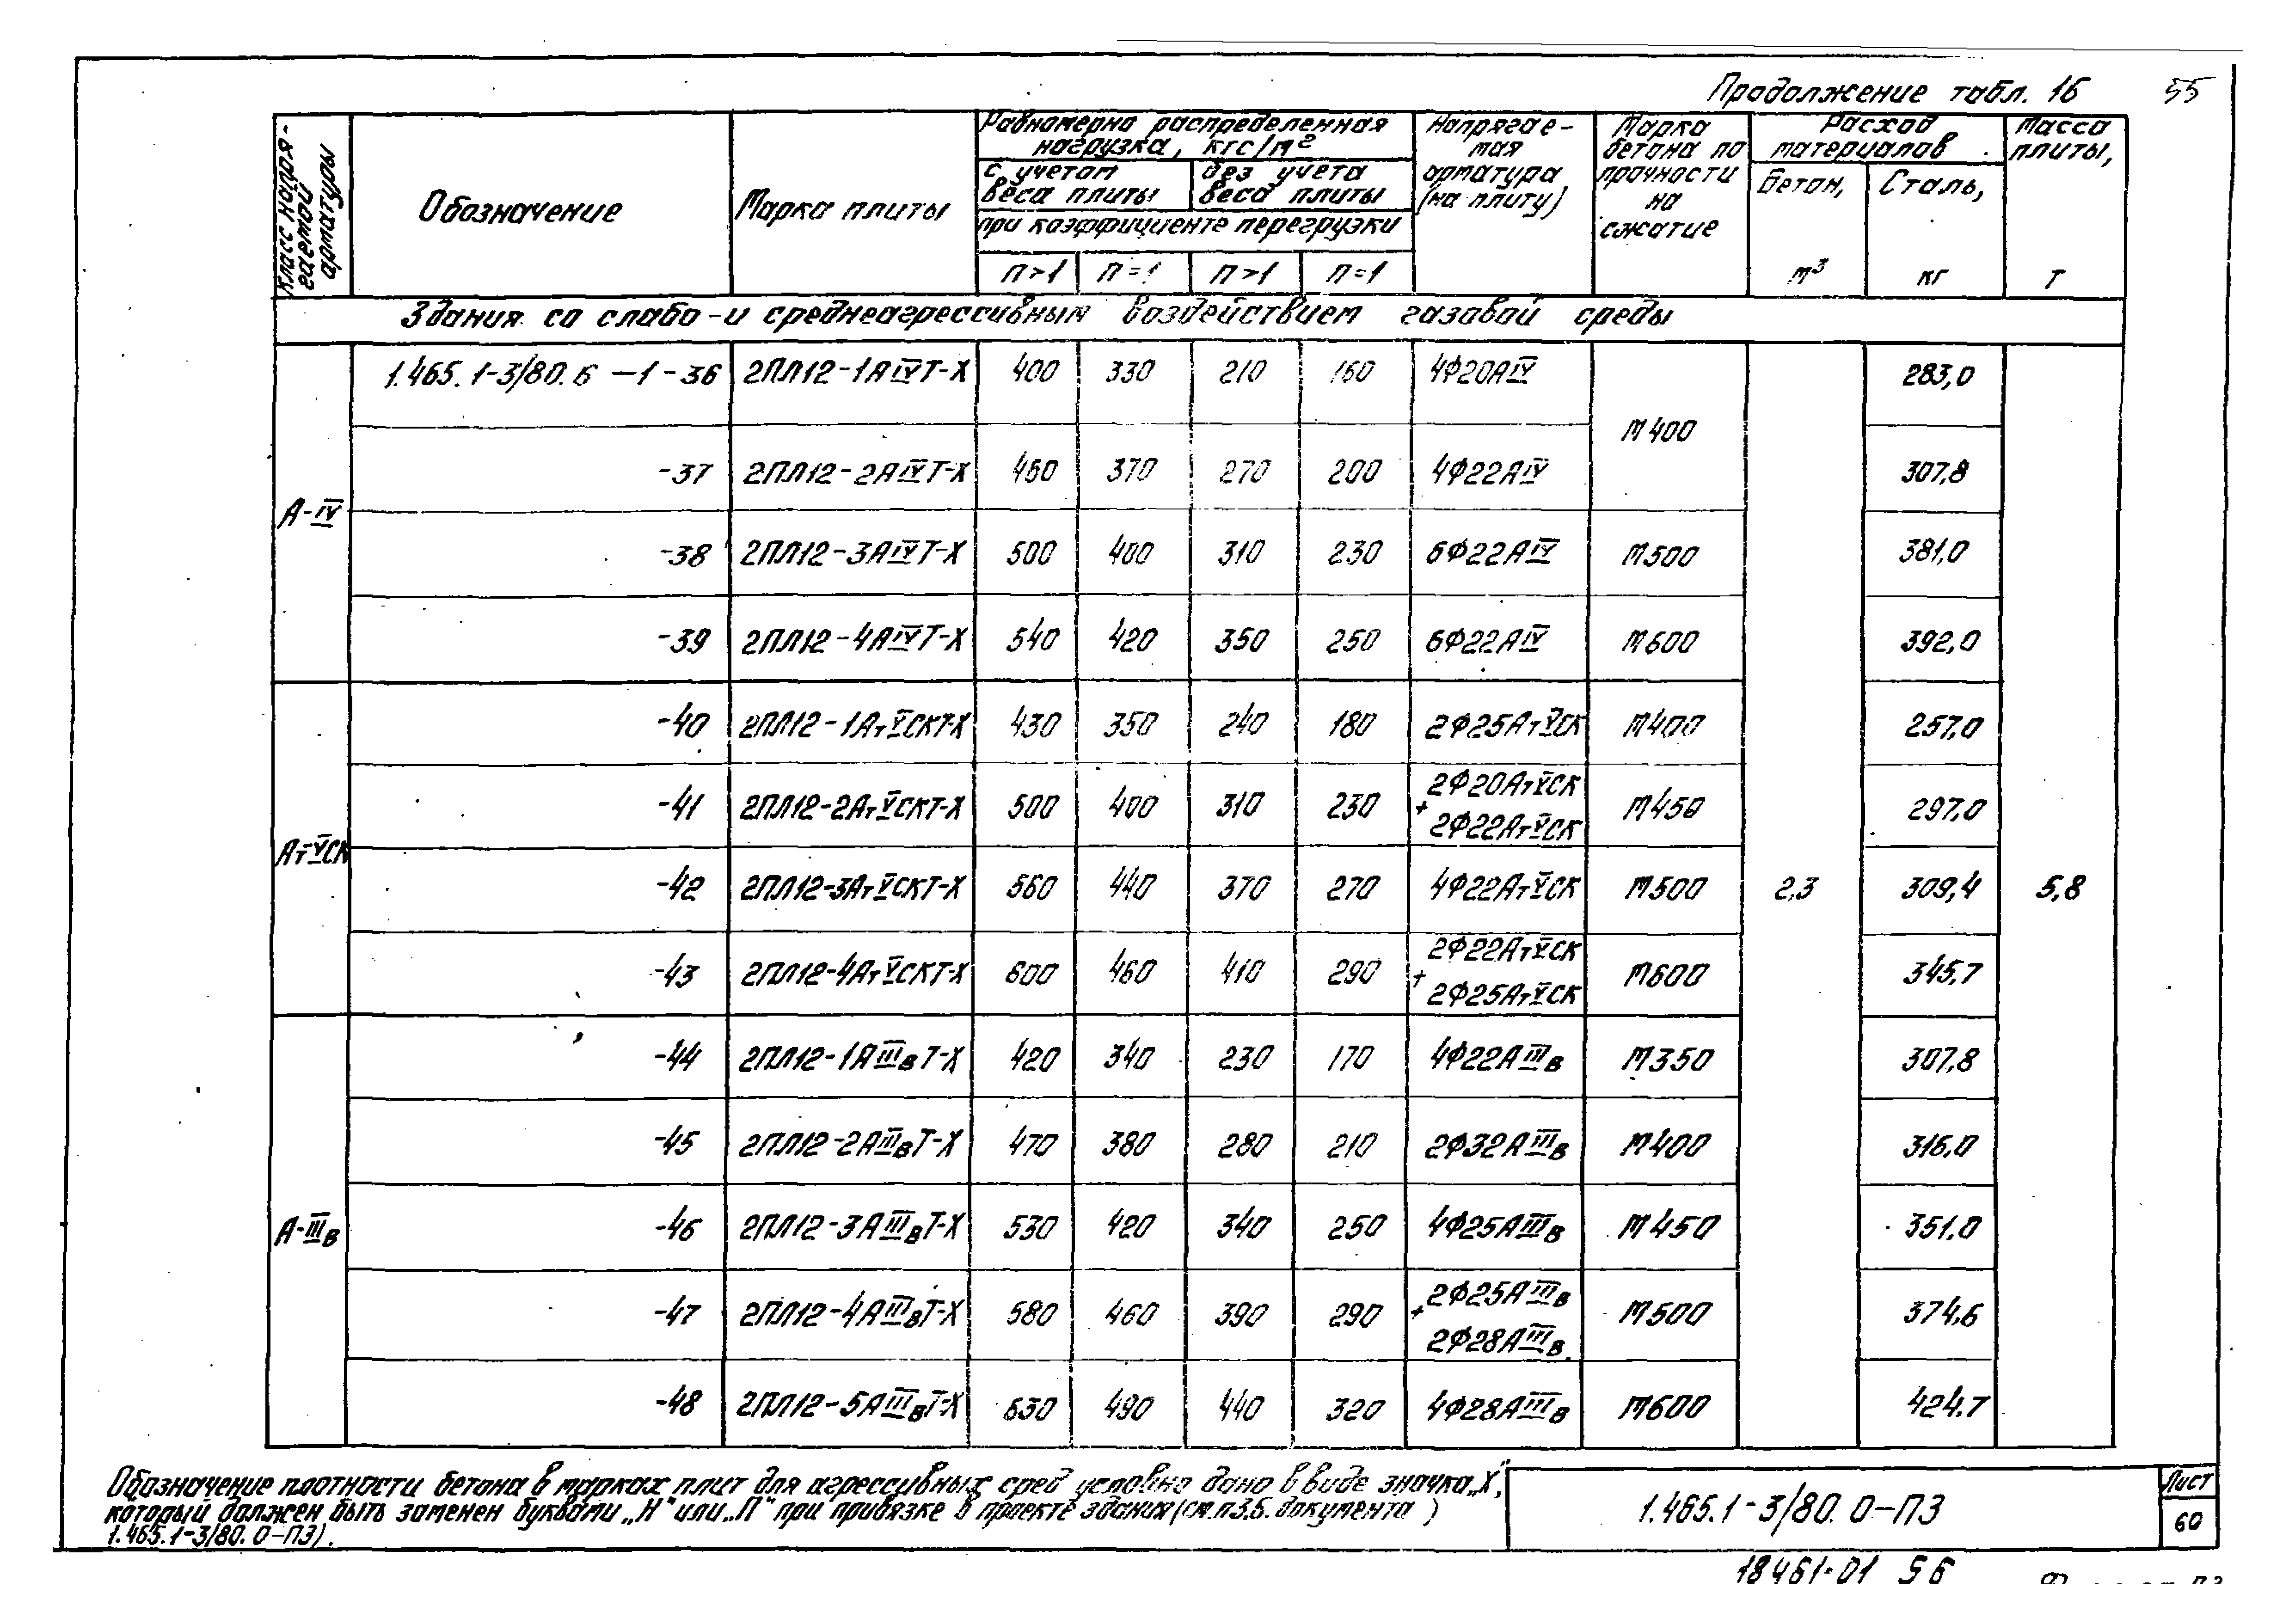 Продолжение табл. 16 55
Класс напря-
гаемой
арматуры
Обозначение
Марка плиты
Равномерно распределенная
нагрузка, кгс/м²
с учетом
веса плиты
без учета
веса плиты
при коэффициенте перегрузки
п>1 п=1 п>1 п=1
Напрягае-
мая
арматура
(на плиту)
Марка
бетона по
прочности
на
сжатие
Расход
материалов
Бетон,
м³
Сталь,
кг
Масса
плиты,
т
Здания со слабо-и среднеагрессивным воздействием газовой среды
А-IV
1.465.1-3/80.6 -1-36 2ПЛ12-1АIVТ-Х 400 330 210 160 4Ф20АIV 283,0
М400
-37 2ПЛ12-2АIVТ-Х 460 370 270 200 4Ф22АIV 307,8
-38 2ПЛ12-3АIVТ-Х 500 400 310 230 6Ф22АIV М500 381,0
-39 2ПЛ12-4АIVТ-Х 540 420 350 250 6Ф22АIV М600 392,0
АтVСК
-40 2ПЛ12-1АтVСКТ-Х 430 350 240 180 2Ф25АтVСК М400 257,0
-41 2ПЛ12-2АтVСКТ-Х 500 400 310 230 2Ф20АтVСК М450 297,0
+ 2Ф22АтVСК
-42 2ПЛ12-3АтVСКТ-Х 560 440 370 270 4Ф22АтVСК М500 2,3 309,4 5,8
-43 2ПЛ12-4АтVСКТ-Х 600 460 410 290 2Ф22АтVСК М600 345,7
+ 2Ф25АтVСК
А-IIIв
-44 2ПЛ12-1АIIIвТ-Х 420 340 230 170 4Ф22АIIIв М350 307,8
-45 2ПЛ12-2АIIIвТ-Х 470 380 280 210 2Ф32АIIIв М400 316,0
-46 2ПЛ12-3АIIIвТ-Х 530 420 340 250 4Ф25АIIIв М450 351,0
-47 2ПЛ12-4АIIIвТ-Х 580 460 390 290 2Ф25АIIIв М500 374,6
+ 2Ф28АIIIв
-48 2ПЛ12-5АIIIвТ-Х 630 490 440 320 4Ф28АIIIв М600 424,7
Обозначение плотности бетона в марках плит для агрессивных сред условно дано в виде значка „Х",
который должен быть заменен буквами „Н" или „П" при привязке в проекте здания (см. п3.6. документа )
1.465.1-3/80.0-ПЗ).
1.465.1-3/80.0-ПЗ
Лист
60
18461-01 56